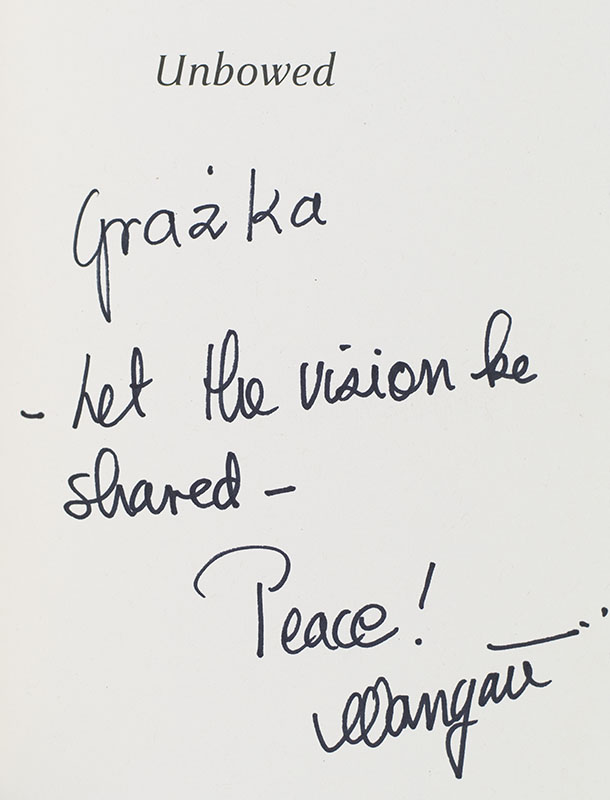 Unbowed
Grażka
- Let the vision be
shared -
Peace!
Wangari